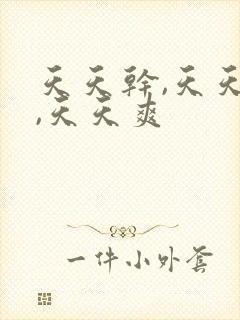 天天幹,天天
,天天爽
一件小外套